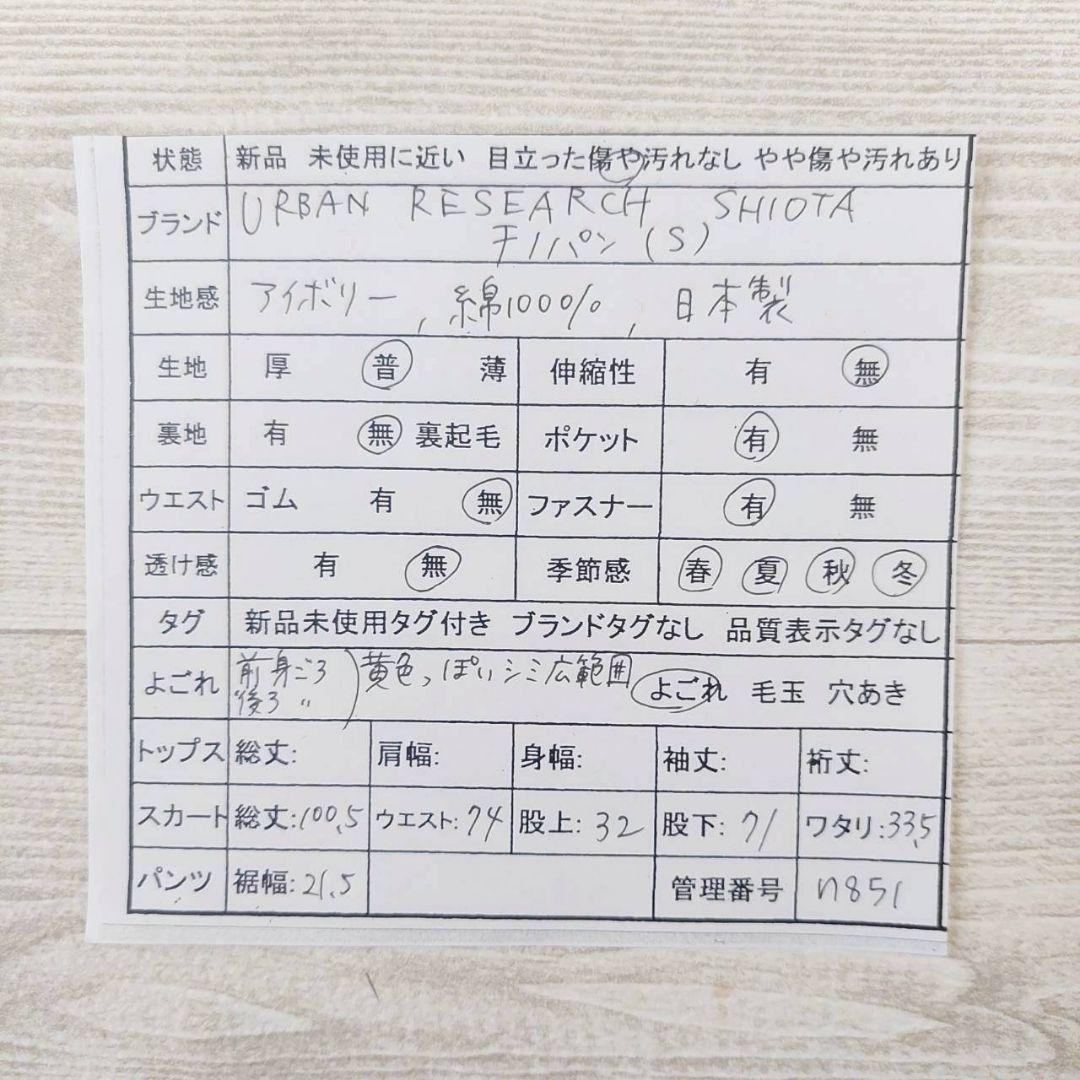 状態 新品 未使用に近い 目立った傷や汚れなし やや傷や汚れあり
ブランド URBAN RESEARCH SHIOTA
チノパン(S)
生地感 アイボリー, 綿100%, 日本製
生地 厚 普 薄 伸縮性 有 無
裏地 有 無 裏起毛 ポケット 有 無
ウエスト ゴム 有 無 ファスナー 有 無
透け感 有 無 季節感 春 夏 秋 冬
タグ 新品未使用タグ付き ブランドタグなし 品質表示タグなし
よごれ 前身ごろ 後ろ 〃 ) 黄色っぽいシミ広範囲 よごれ 毛玉 穴あき
トップス 総丈: 肩幅: 身幅: 袖丈: 裄丈:
スカート 総丈:100.5 ウエスト:74 股上:32 股下:71 ワタリ:33.5
パンツ 裾幅:21.5 管理番号 n851